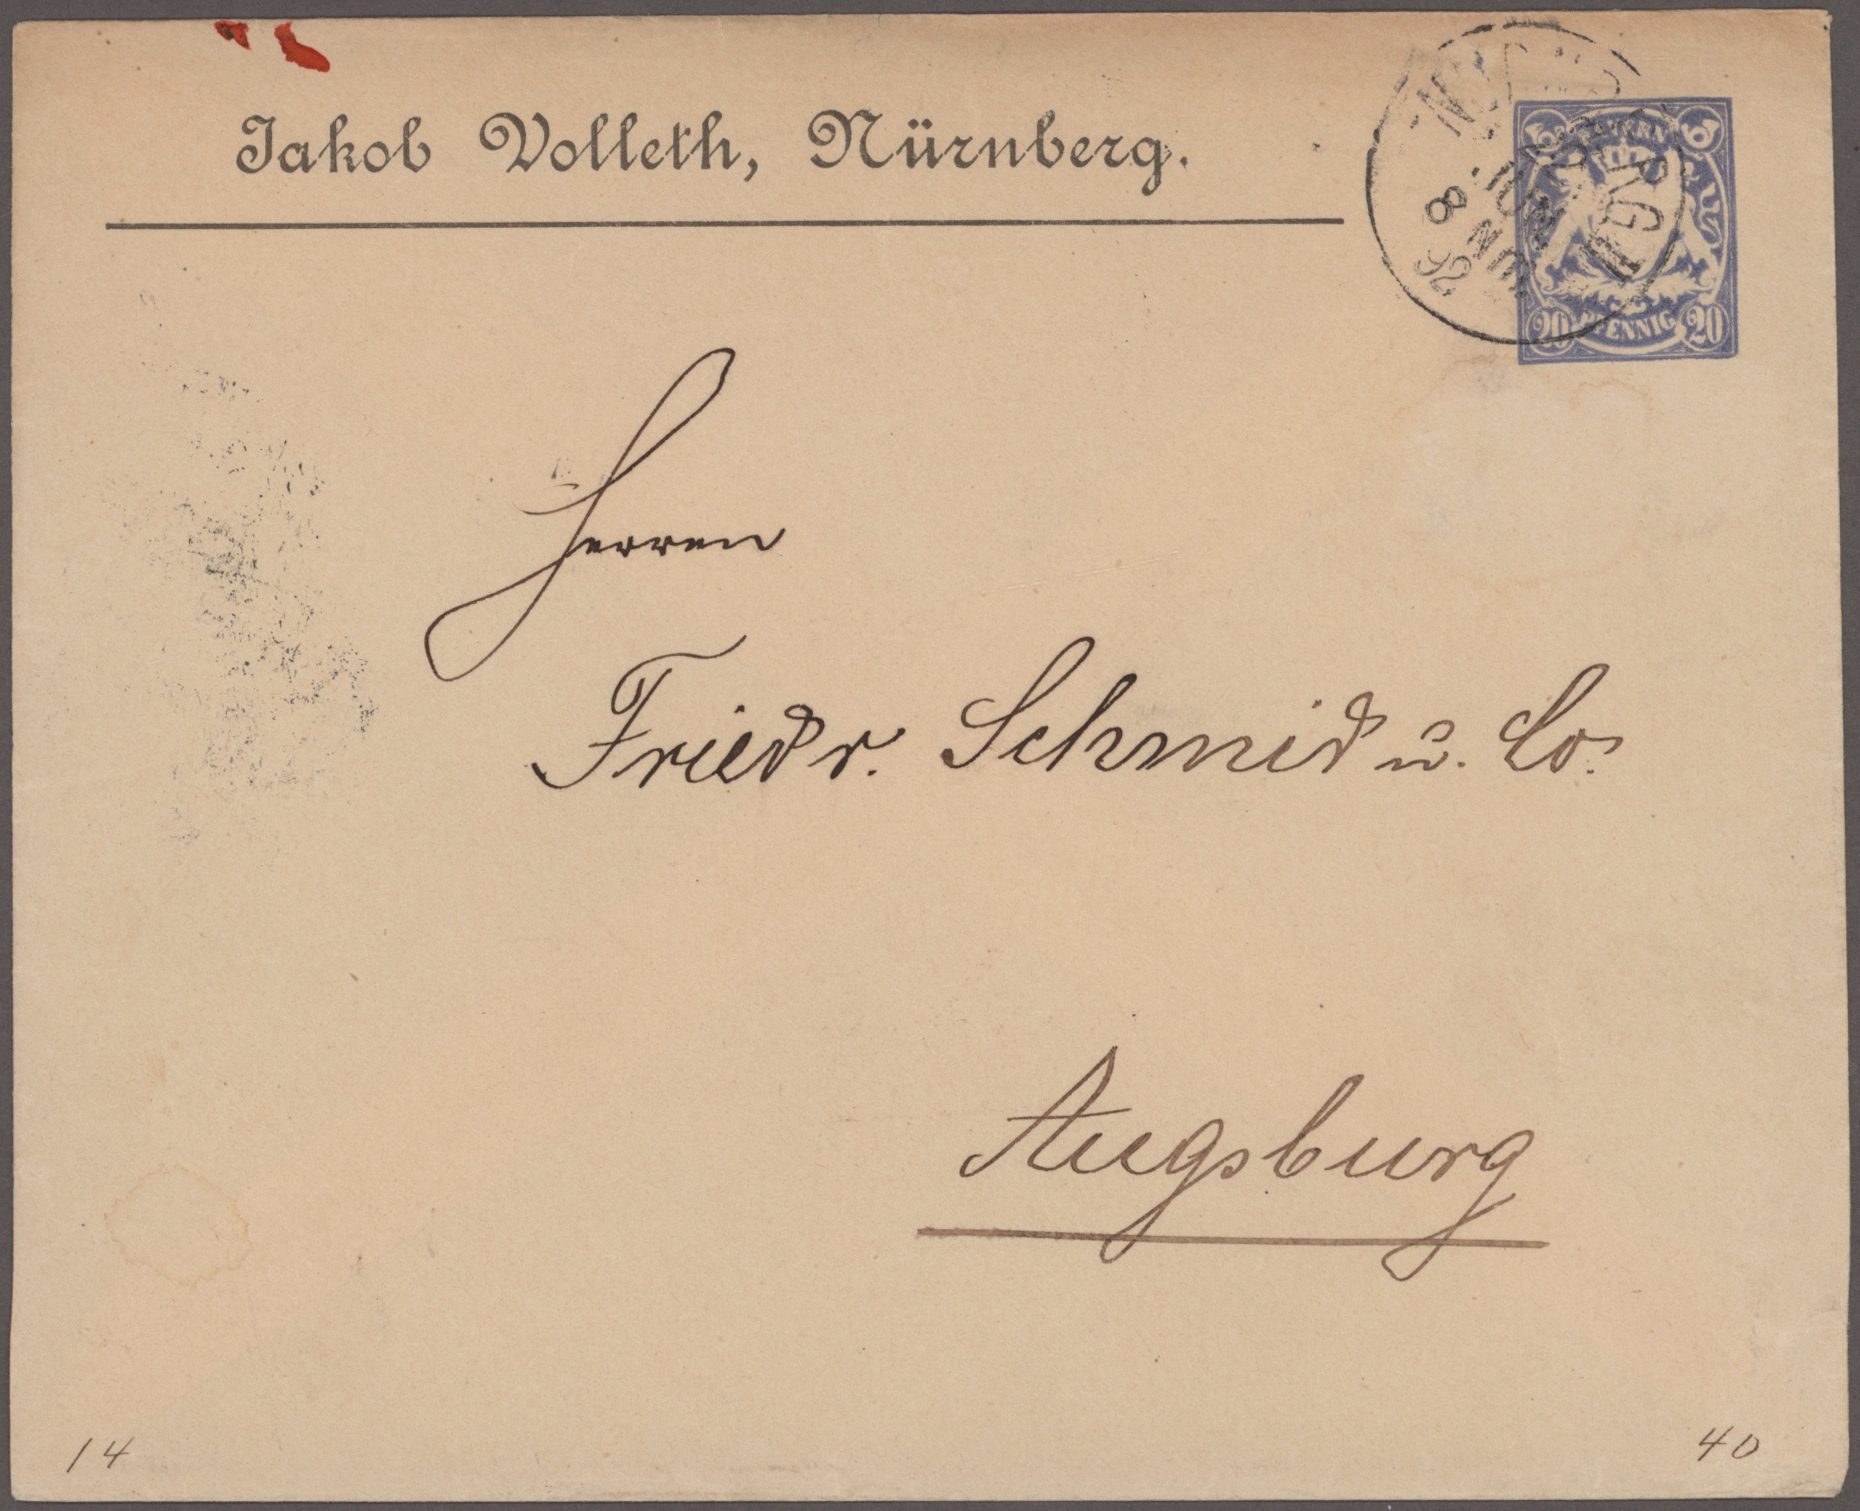 Jakob Volleth, Nürnberg.
BAYERN
20 PFENNIG 20
8
Herren
Friedr. Schmid u. Co.
Augsburg
14
40